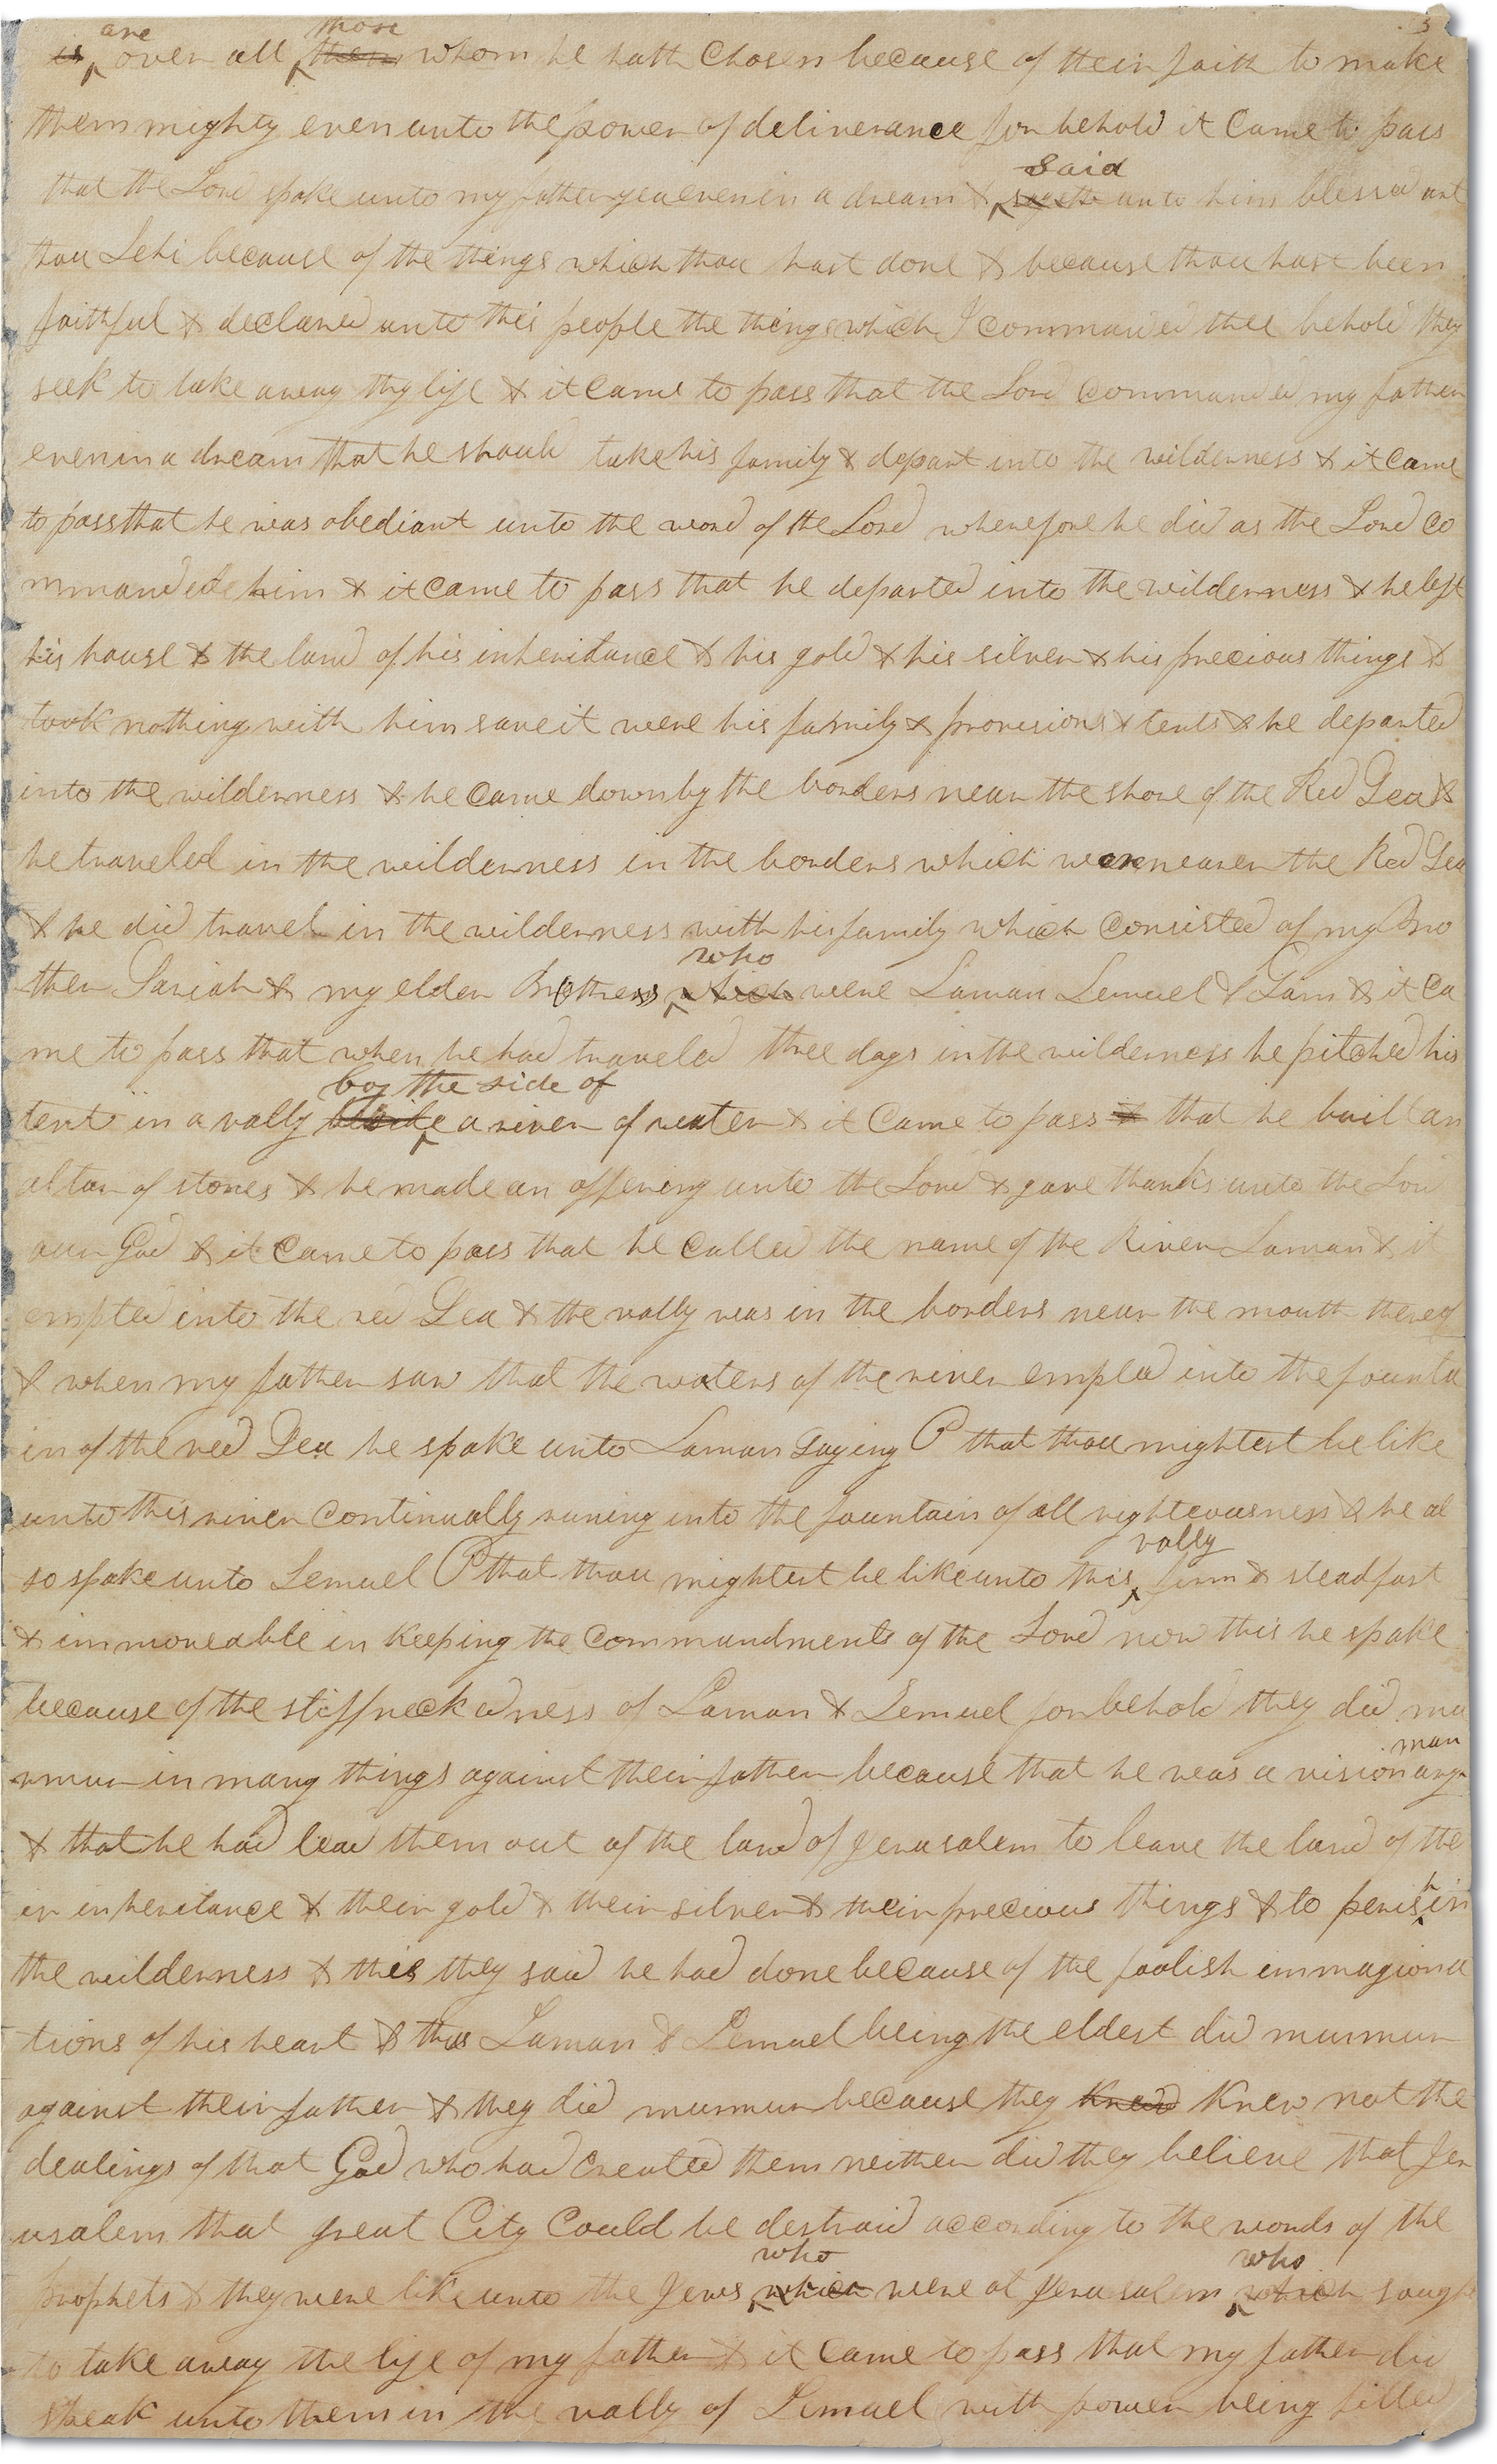 3
are those
is over all them whom he hath Chosen because of their faith to make
them mighty even unto the power of deliverance for behold it Came to pass
said
that the Lord spake unto my father yea even in a dream & sayeth unto him blessed art
thou Lehi because of the things which thou hast done & because thou hast been
faithful & declared unto this people the things which I commanded thee behold they
seek to take away thy life & it Came to pass that the Lord commanded my father
even in a dream that he should take his family & depart into the wilderness & it Came
to pass that he was obediant unto the word of the Lord wherefore he did as the Lord co
mmanded him & it came to pass that he departed into the wilderness & he left
his house & the land of his inheridance & his gold & his silver & his precious things &
took nothing with him save it were his family & provisions & tents & he departed
into the wilderness & he Came down by the borders near the shore of the Red Sea &
he traveled in the wilderness in the borders which were nearer the Red Sea
& he did travel in the wilderness with his family which Consisted of my Mo
who
ther Sariah & my elder Brothers which were Laman Lemuel & Sam & it Ca
me to pass that when he had traveled three days in the wilderness he pitched his
by the side of
tent in a vally beside a river of water & it Came to pass & that he built an
altar of stones & he made an offering unto the Lord & gave thanks unto the Lord
our God & it Came to pass that he Called the name of the River Laman & it
empted into the red Sea & the vally was in the borders near the mouth thereof
& when my father saw that the waters of the river empted into the founta
in of the red Sea he spake unto Laman saying O that thou mightest be like
unto this river Continually runing into the fountain of all righteousness & he al
vally
so spake unto Lemuel O that thou mightest be like unto this firm & steadfast
& immoveable in keeping the Commandments of the Lord now this he spake
because of the stiffneckedness of Laman & Lemuel for behold they did mu
man
rmur in many things against their father because that he was a visionary
& that he had lead them out of the land of Jerusalem to leave the land of the
h
ir inheritance & their gold & their silver & their precious things & to peris in
the wilderness & this they said he had done because of the foolish immagiona
tions of his heart & thus Laman & Lemuel being the eldest did murmur
against their father & they did murmur because they knew not the
dealings of that God who had created them neither did they believe that Jer
usalem that great City Could be destroid according to the words of the
who who
prophets & they were like unto the Jews which were at Jerusalem which sought
to take away the life of my father & it Came to pass that my father did
speak unto them in the vally of Lemuel with power being filled